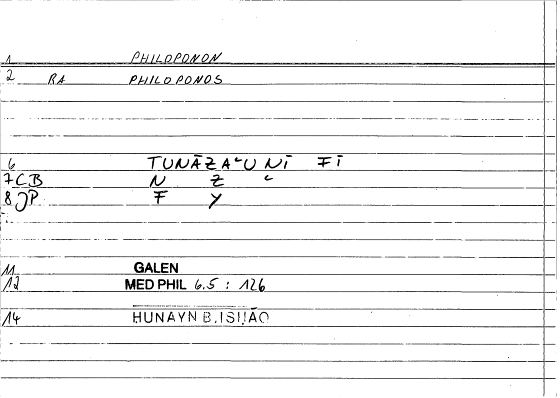 1 PHILOPONON
2 RA PHILOPONOS
6 TUNĀZAʿU NĪ FĪ
7 CB N Z ʿ
8 JP F Y
11 GALEN
12 MED PHIL 6.5 : 126
14 HUNAYN B. ISḤĀQ